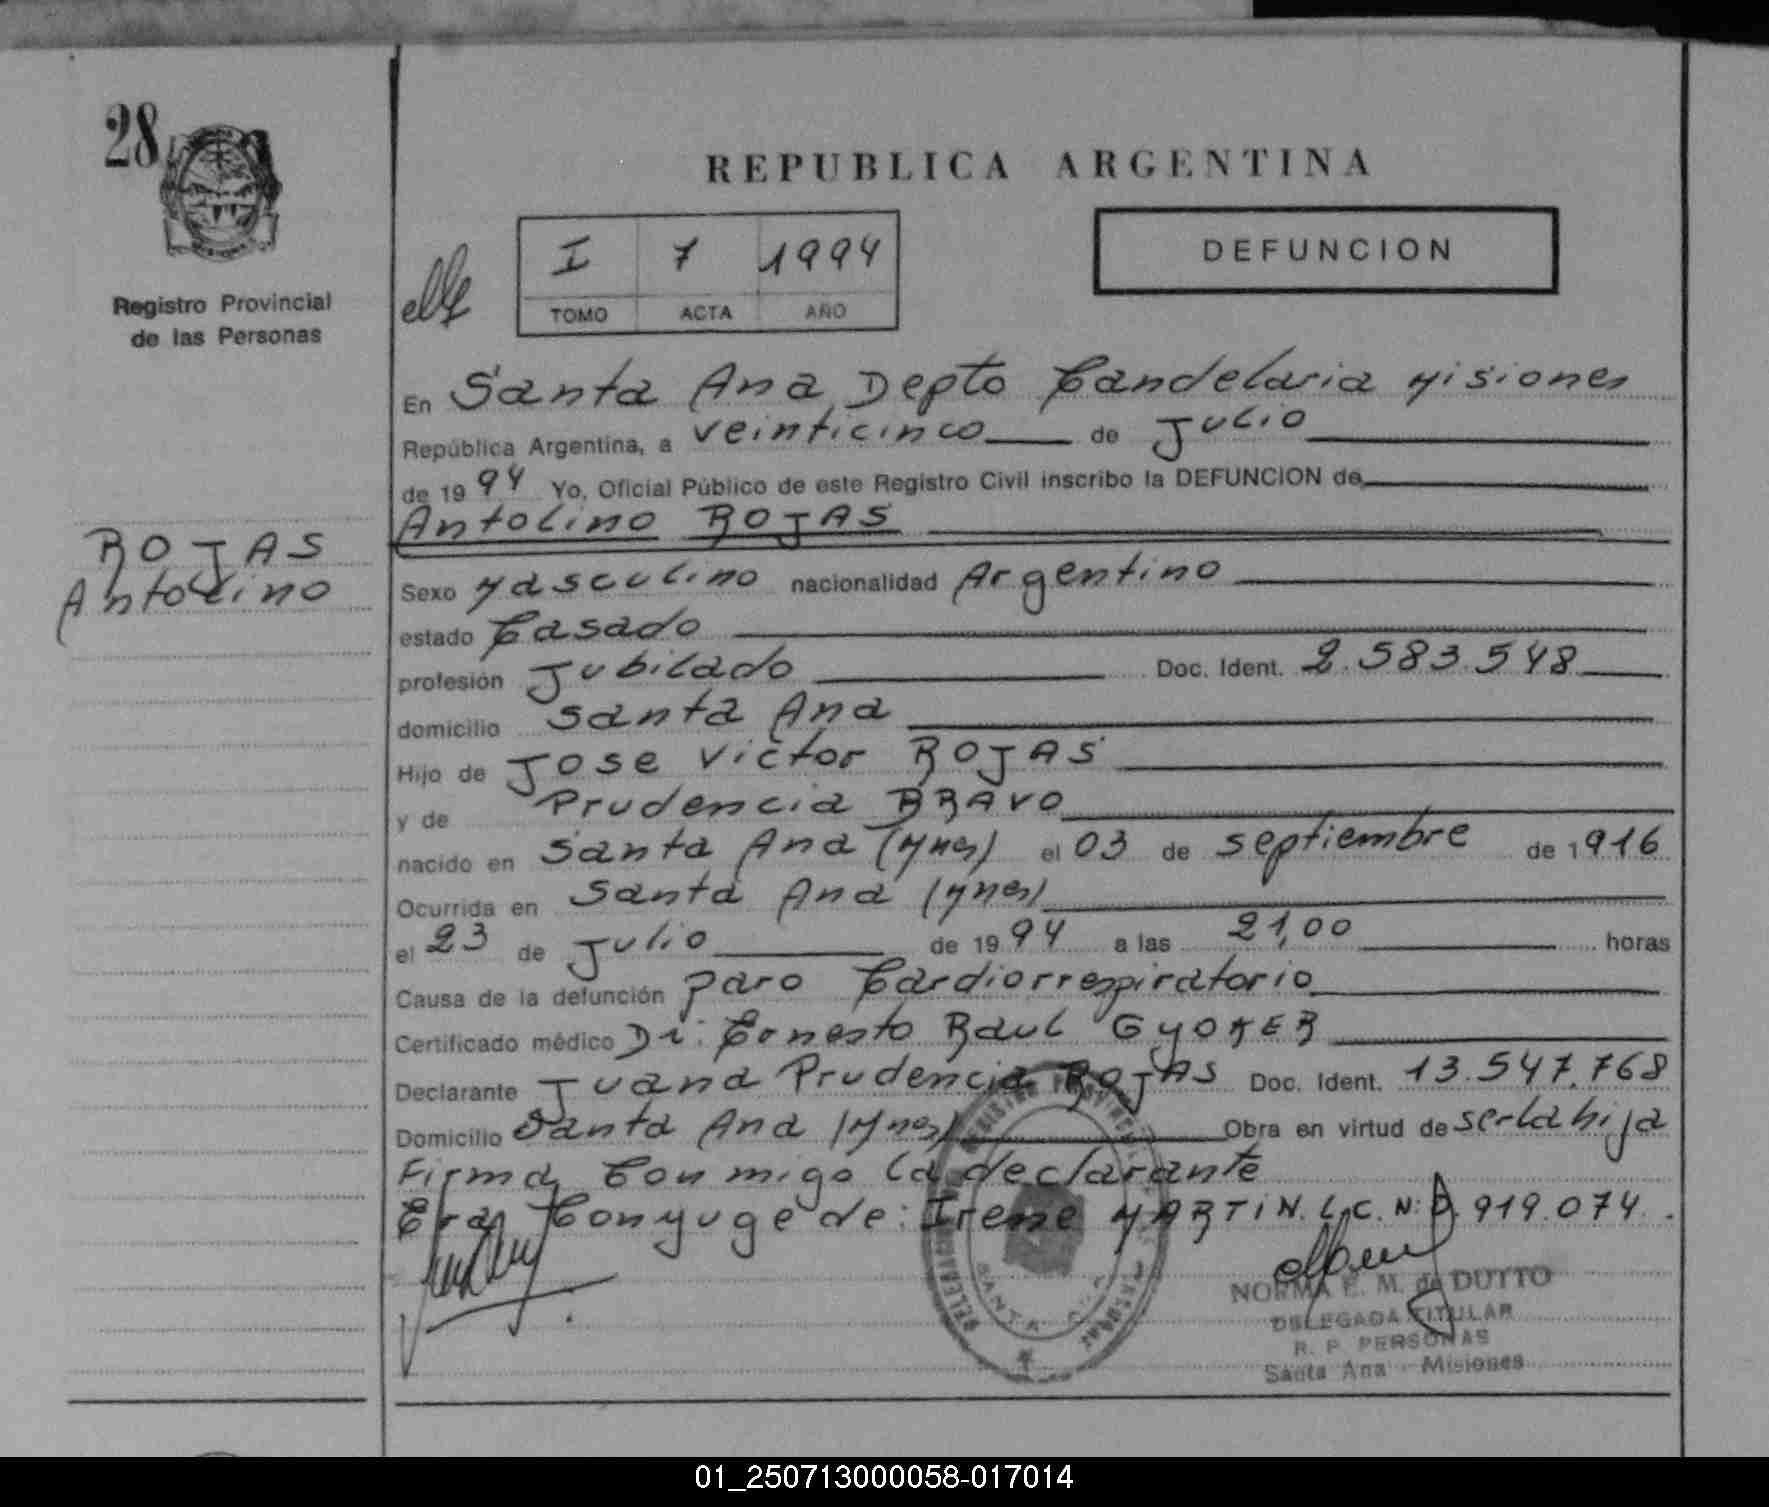 28
Registro Provincial
de las Personas
ROJAS
Antolino
REPUBLICA ARGENTINA
I 7 1994
TOMO ACTA AÑO
DEFUNCION
En Santa Ana Depto Candelaria Misiones
República Argentina, a veinticinco de Julio
de 1994 Yo, Oficial Público de este Registro Civil inscribo la DEFUNCION de
Antolino ROJAS
Sexo Masculino nacionalidad Argentino
estado Casado
profesión Jubilado Doc. Ident. 2.583.548
domicilio Santa Ana
Hijo de Jose Victor ROJAS
y de Prudencia BRAVO
nacido en Santa Ana (Mnes) el 03 de septiembre de 1916
Ocurrida en Santa Ana (Mnes)
el 23 de Julio de 1994 a las 21,00 horas
Causa de la defunción paro Cardiorrespiratorio
Certificado médico Dr: Ernesto Raul GYOKER
Declarante Juana Prudencia ROJAS Doc. Ident. 13.547.768
Domicilio Santa Ana (Mnes) Obra en virtud de ser la hija
Firma Conmigo la declarante
Era Conyuge de: Irene MARTIN. L.C. N: 919.074.
NORMA E. M. de DUTTO
DELEGADA TITULAR
R. P. PERSONAS
Santa Ana - Misiones
01_250713000058-017014